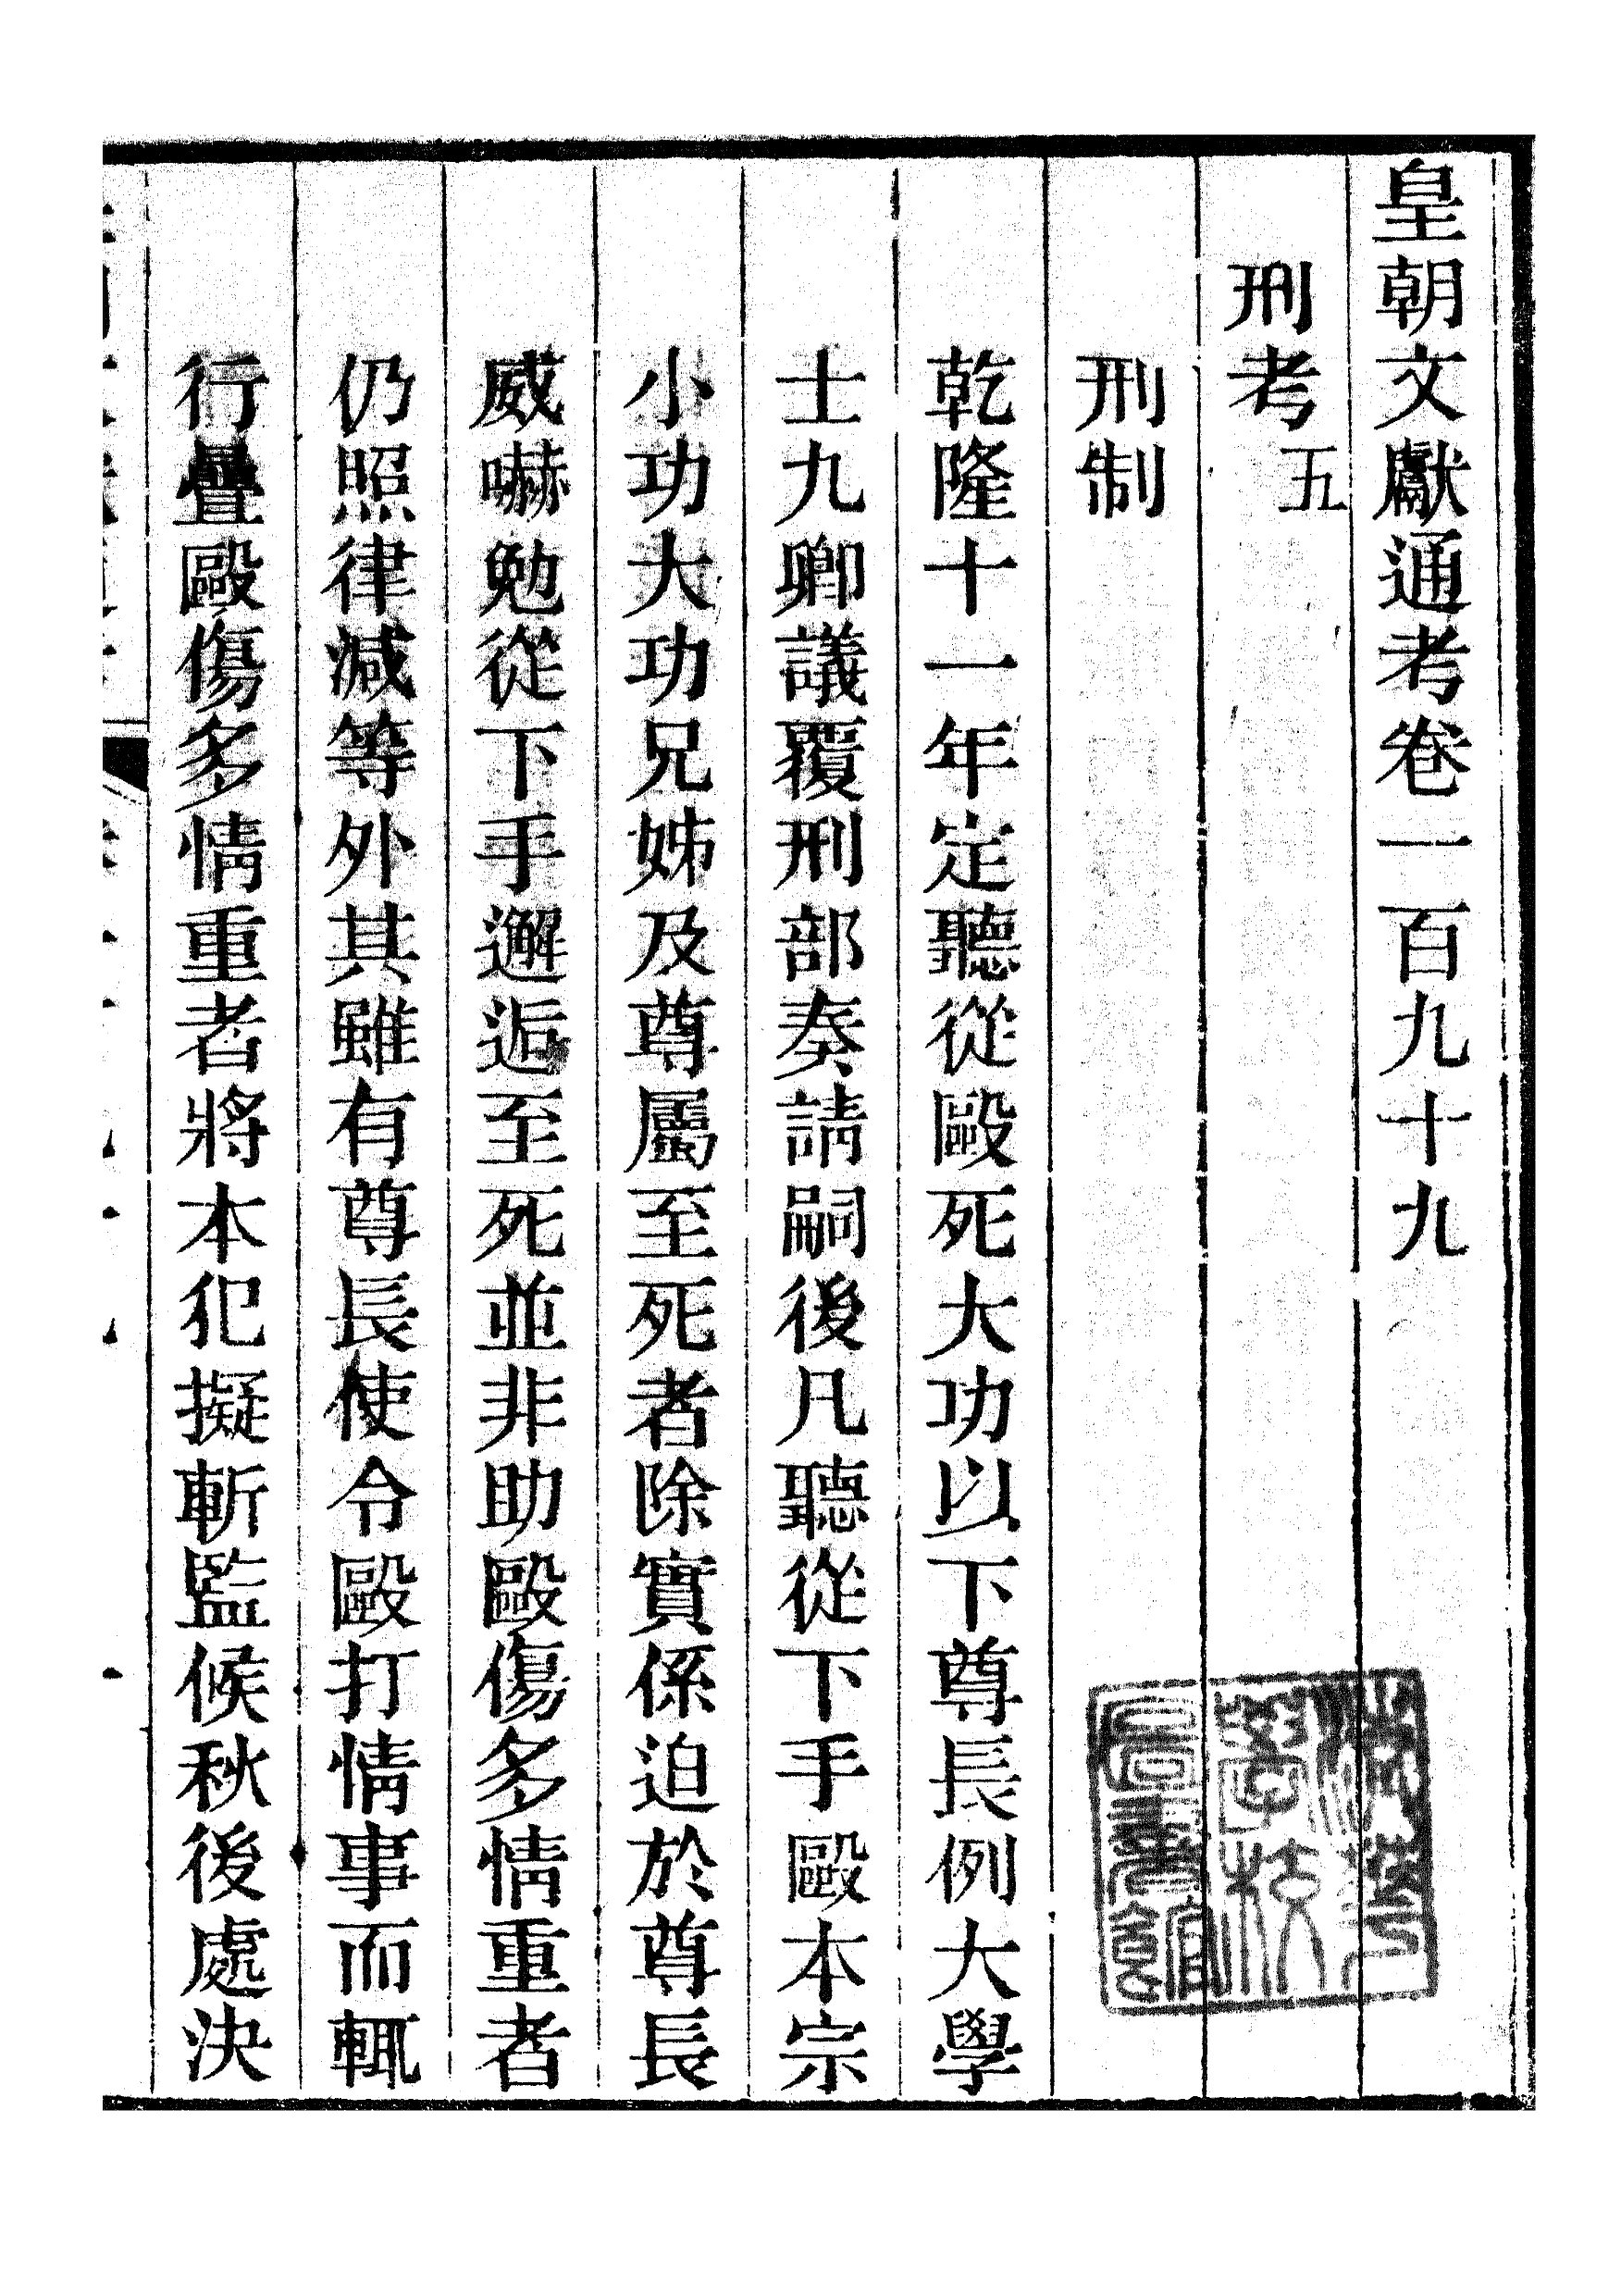 皇朝文獻通考卷一百九十九
刑考五
刑制
乾隆十一年定聽從毆死大功以下尊長例大學
士九卿議覆刑部奏請嗣後凡聽從下手毆本宗
小功大功兄姊及尊屬至死者除實係迫於尊長
威嚇勉從下手邂逅至死並非助毆傷多情重者
仍照律減等外其雖有尊長使令毆打情事而輒
行疊毆傷多情重者將本犯擬斬監候秋後處決